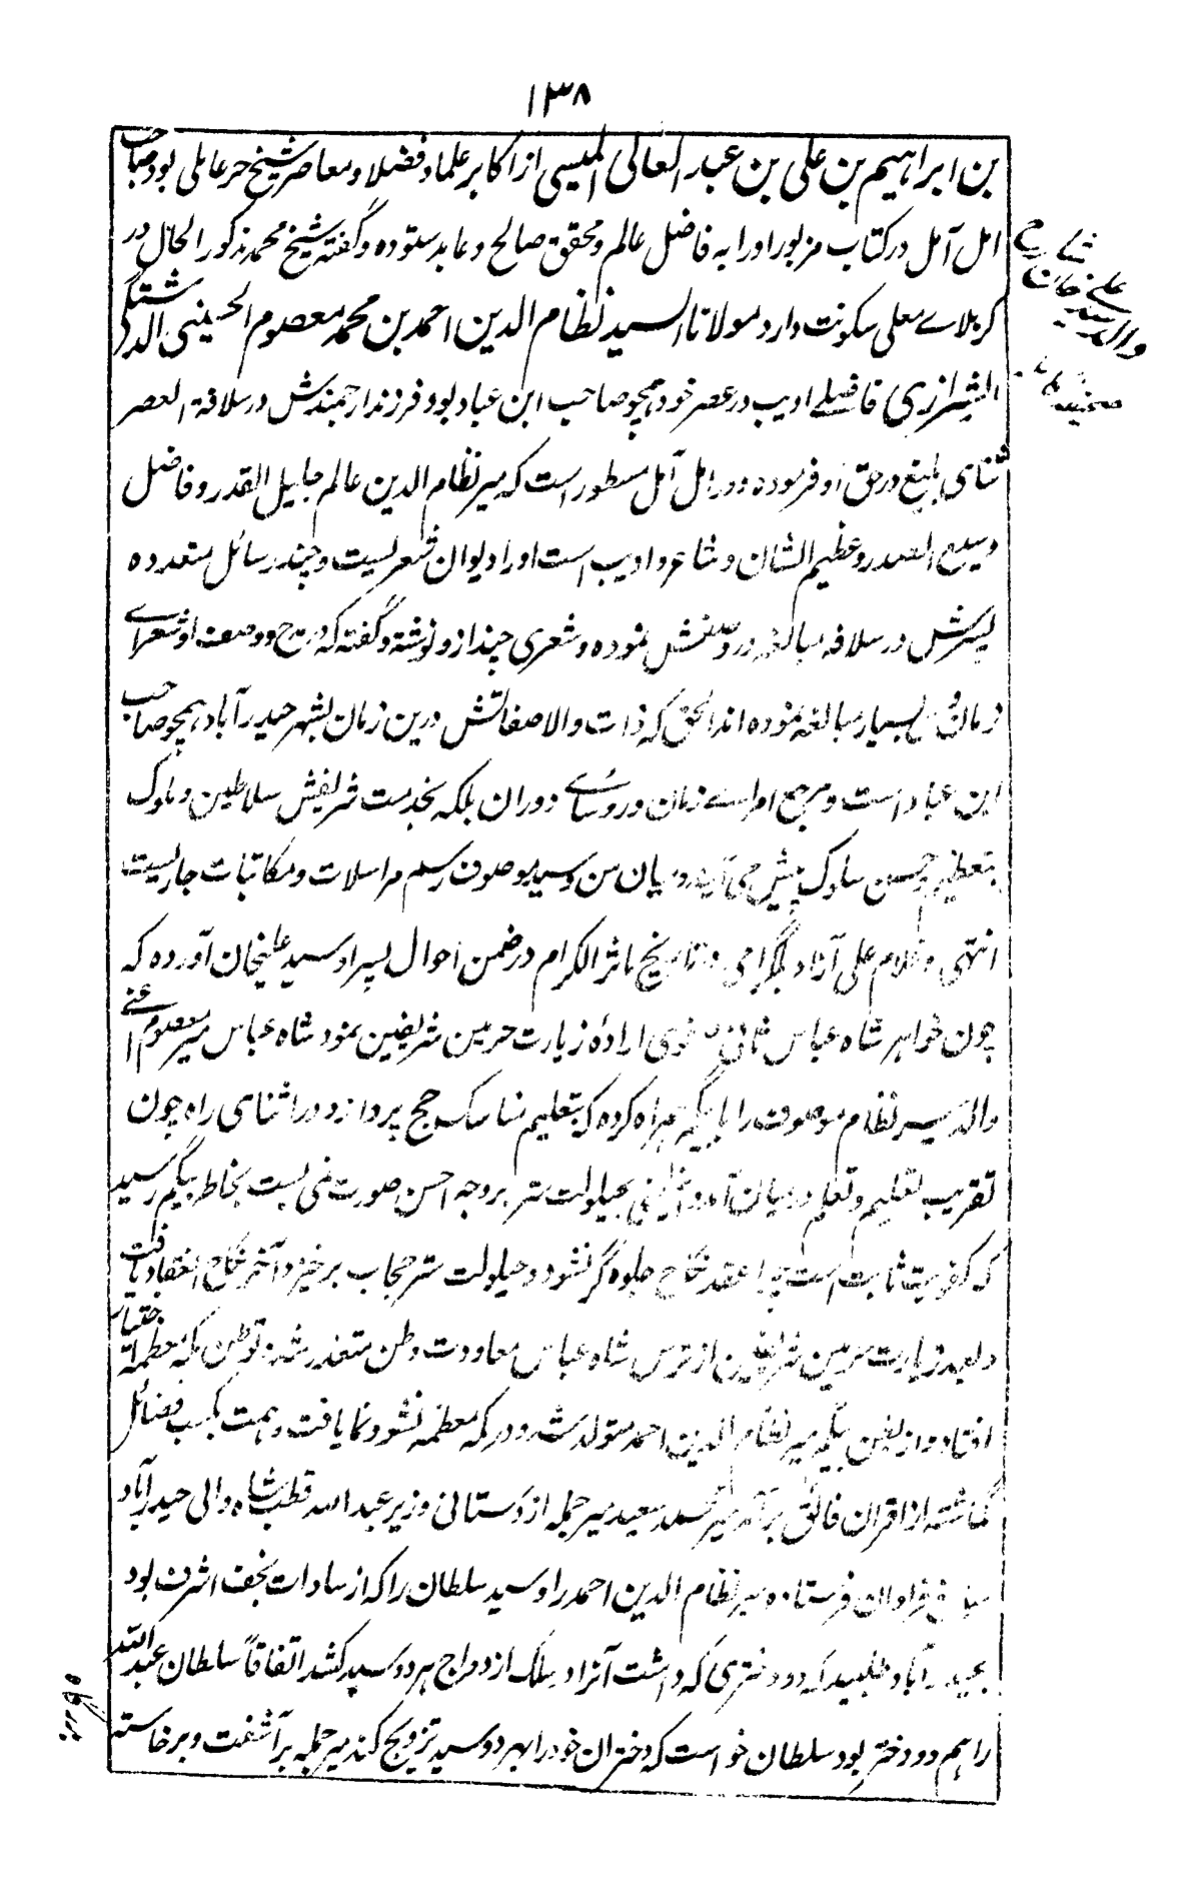 ۱۳۸
بن ابراہیم بن علی بن عبد العالی المیسی از اکابر علماء و فضلا و معاصر شیخ حر عاملی بود صاحب
امل آمل در کتاب مزبور اورا به فاضل عالم و محقق صالح و عابد ستوده و گفته شیخ محمد مذکور الحال در
کربلاے معلی سکونت دارد مولانا السید نظام الدین احمد بن محمد معصوم الحسینی الدشتکی
الشیرازی فاضلے ادیب در عصر خود ہمچو صاحب ابن عباد بود فرزند ارجمندش در سلافة العصر
ثنای بلیغ در حق او فرموده و در امل آمل مسطور است که میر نظام الدین عالم جلیل القدر و فاضل
وسیع الصدر و عظیم الشان و شاعر و ادیب است اورا دیوان شعریست و چند رسائل متعدده
پسرش در سلافه مبالغه در وصفش نموده و شعری چند ازو نوشته و گفته که در مدح و وصف او شعراے
زمان بسیار مبالغه نموده اند الحق که ذات والا صفاتش درین زمان بشهر حیدرآباد ہمچو صاحب
ابن عباد است و مرجع امراے زمان و رؤساے دوران بلکه بخدمت شریفش سلاطین و ملوک
بتعظیم و حسن سلوک پیش می آیند و میان من و سید موصوف رسم مراسلات و مکاتبات جاریست
انتهی و غلام علی آزاد بلگرامی در تاریخ ماثر الکرام در ضمن احوال پسر او سید علیخان آورده که
چون خواہر شاه عباس ثانی صفوی ارادۀ زیارت حرمین شریفین نمود شاه عباس میر معصوم اعنے
والد میر نظام موصوف را با بیگم ہمراه کرده که بتعلیم مناسک حج پردازد در اثنای راه چون
تقریب تعلیم و تعلم در میان آمد و بحیلولت ستر بروجه احسن صورت نمی بست بخاطر بیگم رسید
که کفویت ثابت است چرا عقد نکاح جلوه گر نشود و حیلولت ستر حجاب برخیزد آخر نکاح انعقاد یافت
و بعد زیارت حرمین شریفین از ترس شاه عباس معاودت وطن متعذر شده توطن مکه معظمه اختیار
افتاد و از بطن بیگم میر نظام الدین احمد متولد شد و در مکه معظمه نشو و نما یافت و ہمت بکسب فضائل
گماشته از اقران فائق برآمد میر محمد سعید میر جمله اردستانی وزیر عبد الله قطب شاه والی حیدرآباد
مبلغی فراوان فرستاده میر نظام الدین احمد را و سید سلطان را که از سادات نجف اشرف بود
بحیدرآباد طلبید که دو دختری که داشت آنرا در سلک ازدواج ہر دو سید کشد اتفاقاً سلطان عبد الله
را ہم دو دختر بود سلطان خواست که دختران خود را بہر دو سید تزویج کند میر جمله برآشفت و برخاسته
شارح
والد سید علے خان
صحیفه کامله